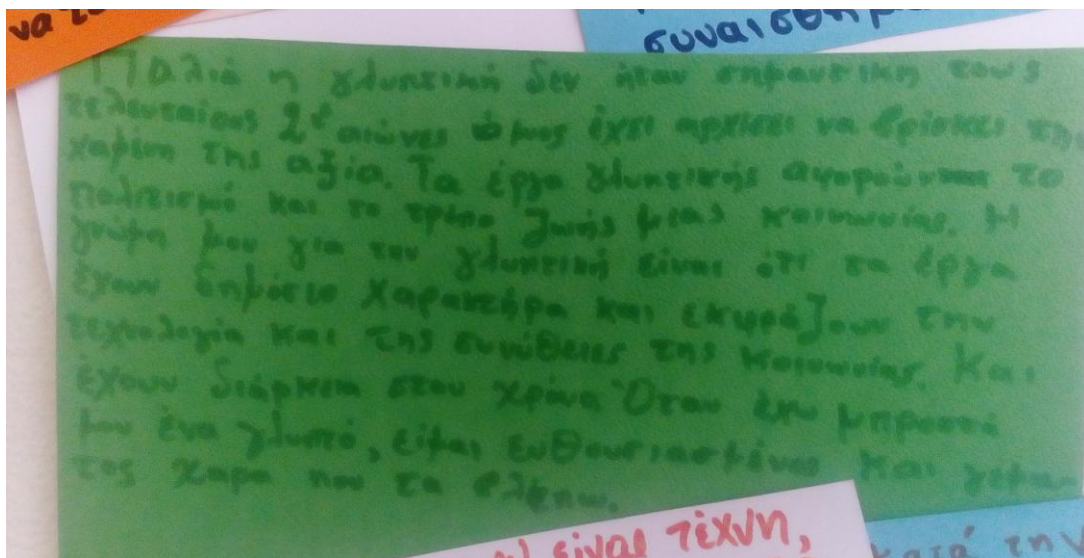 να το
συναισθημα
Παλιά η γλυπτική δεν ήταν σημαντικη τους
τελευταίους 2 αιώνες όμως έχει αρχίσει να βρίσκει την
χαμένη της αξία. Τα έργα γλυπτικής αφορούν το
πολιτισμό και το τρόπο ζωής μιας κοινωνίας. Η
γνώμη μου για την γλυπτική είναι ότι τα έργα
έχουν δημόσιο χαρακτήρα και εκφράζουν την
τεχνολογία και της συνήθειες της κοινωνίας. Και
έχουν διάρκεια στον χρόνο Όταν έχω μπροστά
μου ένα γλυπτό, είμαι ενθουσιασμένος και
της χαρα που τα βλέπω.
είναι τέχνη,
την